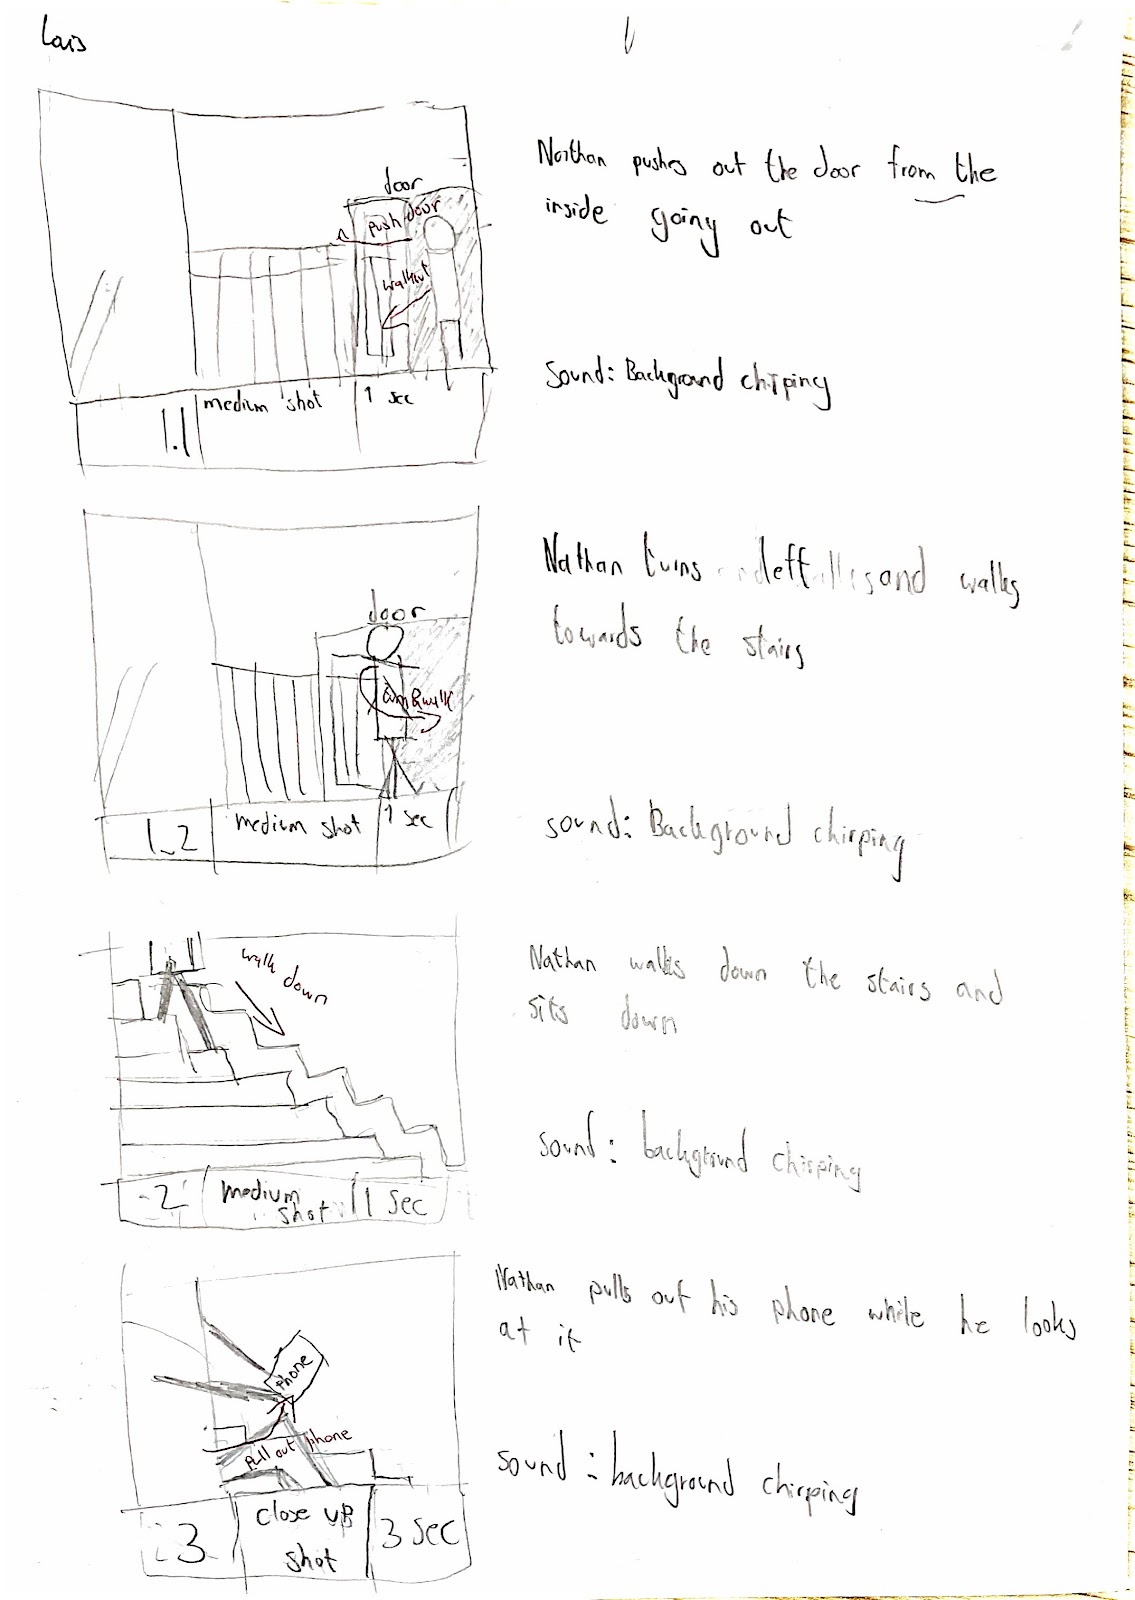 Lais
door
push door
walkout
medium shot
1 sec
1.1
Nathan pushes out the door from the
inside going out
Sound: Background chirping
door
medium shot
1 sec
1.2
Nathan turns left and walks
towards the stairs
sound: Background chirping
walk down
2
medium
shot
1 sec
Nathan walks down the stairs and
sits down
sound: background chirping
phone
Pull out phone
3
close up
shot
3 sec
Nathan pulls out his phone while he looks
at it
sound: background chirping